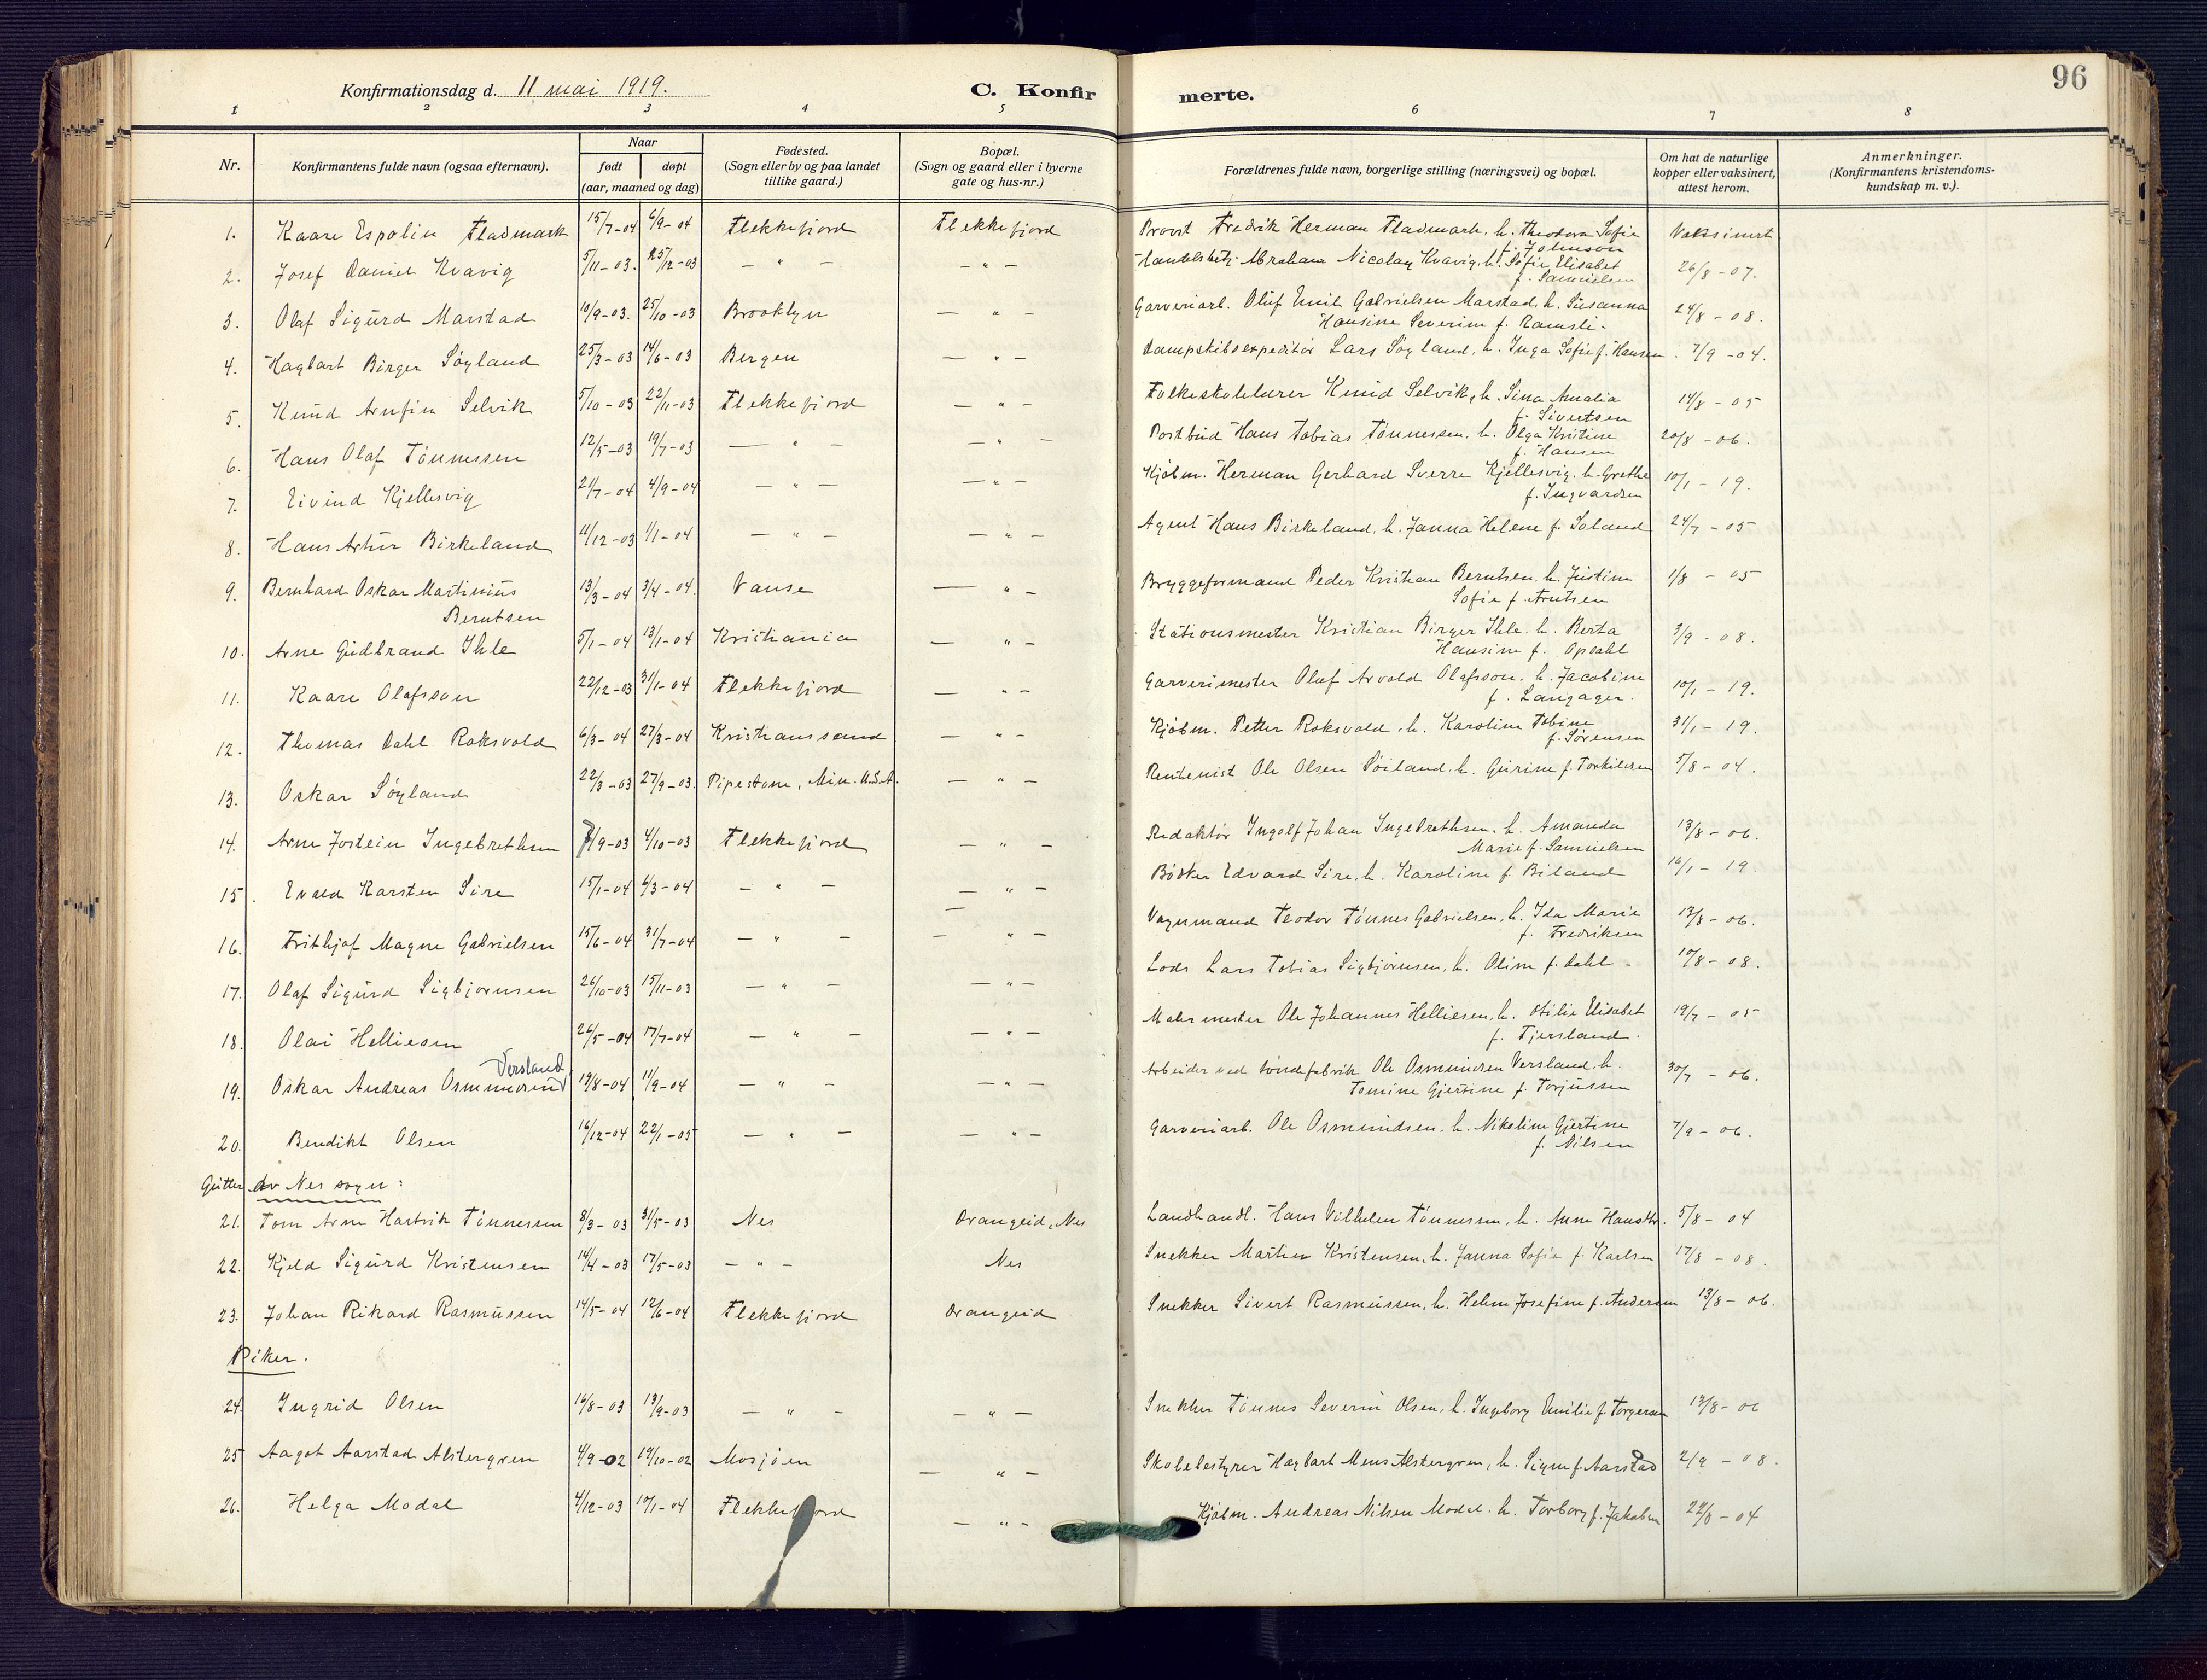 96
Konfirmationsdag d. 11 mai 1919.
C. Konfirmerte.
1 2 3 4 5 6 7 8
Nr.
Konfirmantens fulde navn (ogsaa efternavn).
Naar
født døpt
(aar, maaned og dag)
Fødested.
(Sogn eller by og paa landet
tillike gaard.)
Bopæl.
(Sogn og gaard eller i byerne
gate og hus-nr.)
Forældrenes fulde navn, borgerlige stilling (næringsvei) og bopæl.
Om hat de naturlige
kopper eller vaksinert,
attest herom.
Anmerkninger.
(Konfirmantens kristendoms-
kundskap m. v.).
1. Kaare Espolin Fladmark 15/7-04 6/9-04 Flekkefjord Flekkefjord Provst Fredrik Herman Fladmark, h. Theodora Sofie Vaksinert.
f. Johnson
2. Josef Daniel Kvavig 5/11-03. 25/12-03 — " — — " — Handelsbetj. Abraham Nicolay Kvavig, h. Sofie Elisabet 26/8-07.
f. Samuelsen
3. Olaf Sigurd Marstad 10/9-03. 25/10-03 Brooklyn — " — Garveriarb. Oluf Emil Gabrielsen Marstad, h. Susanna 24/8-08.
Hansine Severine f. Ramsli.
4. Hagbart Birger Søyland 25/3-03 14/6-03 Bergen — " — Dampskibsexpeditør Lars Søyland, h. Inga Sofie f. Hansen. 7/9-04.
5. Knud Arnfin Selvik 5/10-03 22/11-03 Flekkefjord — " — Folkeskolelærer Knud Selvik, h. Sina Amalia 14/8-05
f. Sivertsen
6. Hans Olaf Tønnessen 12/5-03 19/7-03 — " — — " — Postbud Hans Tobias Tønnessen, h. Olga Kristine 20/8-06.
f. Hansen
7. Eivind Kjellesvig 21/7-04 4/9-04 — " — — " — Kjøbm. Herman Gerhard Sverre Kjellesvig, h. Grethe 10/1-19.
f. Ingvardsen
8. Hans Artur Birkeland 11/12-03 1/1-04 — " — — " — Agent Hans Birkeland, h. Janna Helene f. Soland 24/7-05
9. Bernhard Oskar Martinius 13/3-04 3/4-04. Vanse — " — Bryggeformand Peder Kristian Berntsen, h. Justine 1/8-05
Berntsen Sofie f. Arntsen
10. Arne Gudbrand Ihle 5/1-04 13/1-04 Kristiania — " — Stationsmester Kristian Birger Ihle, h. Berta 3/9-08.
Hansine f. Opdahl
11. Kaare Olafsson 22/12-03 31/1-04 Flekkefjord — " — Garverimester Oluf Arvold Olafsson, h. Jacobine 10/1-19.
f. Langager.
12. Thomas Dahl Roksvold 6/3-04 27/3-04 Kristianssand — " — Kjøbm. Petter Roksvold, h. Karoline Tobine 31/1-19.
f. Sørensen
13. Oskar Søyland 22/3-03 27/9-03. Pipestone, Min. U.S.A. — " — Rentenist Ole Olsen Søiland, h. Gurine f. Torkildsen 5/8-04.
14. Arne Jostein Ingebrethsen 7/9-03 4/10-03 Flekkefjord — " — Redaktør Ingolf Johan Ingebrethsen, h. Amanda 13/8-06.
Marie f. Samuelsen
15. Evald Karsten Sire 15/1-04 6/3-04 — " — — " — Bødker Edvard Sire, h. Karoline f. Biland 16/1-19.
16. Frithjof Magne Gabrielsen 15/6-04 31/7-04 — " — — " — Vognmand Teodor Tønnes Gabrielsen, h. Ida Marie 13/8-06.
f. Fredriksen
17. Olaf Sigurd Sigbjørnsen 26/10-03 15/11-03 — " — — " — Lods Lars Tobias Sigbjørnsen, h. Oline f. Dahl. 10/8-08.
18. Olai Helliesen 26/5-04 17/7-04 — " — — " — Malermester Ole Johannes Helliesen, h. Otilie Elisabet 19/7-05
f. Tjersland.
Versland
19. Oskar Andreas Osmundsen 19/8-04 11/9-04 — " — — " — Arbeider ved tøndefabrik Ole Osmundsen Versland, h. 30/7-06.
Tomine Gjertine f. Torjussen
20. Bendikt Olsen 16/12-04 22/1-05 — " — — " — Garveriarb. Ole Osmundsen, h. Nikoline Gjertine 7/9-06.
f. Nilsen
Gutter av Nes sogn:
21. Tom Arne Hartvik Tønnessen 8/3-03 31/5-03 Nes Drangeid, Nes Landhandl. Hans Vilhelm Tønnessen, h. Anne Hansdtr. 5/8-04
22. Kjeld Sigurd Kristensen 14/4-03 17/5-03 — " — Nes Snekker Martin Kristensen, h. Janna Sofie f. Karlsen 17/8-08.
23. Johan Rikard Rasmussen 14/5-04 12/6-04 Flekkefjord Drangeid Snekker Sivert Rasmussen, h. Helene Josefine f. Andersen 13/8-06.
Piker.
24. Ingrid Olsen 16/8-03 13/9-03 — " — — " — Snekker Tønnes Severin Olsen, h. Ingeborg Emilie f. Torgersen 13/8-06
25 Aagot Aarstad Alstergren 4/9-02 19/10-02 Mosjøen — " — Skolebestyrer Hagbart Mens Alstergren, h. Signe f. Aarstad 2/9-08.
26. Helga Modal 4/12-03 10/1-04 Flekkefjord — " — Kjøbm. Andreas Nilsen Modal, h. Torborg f. Jakobsen 22/8-04